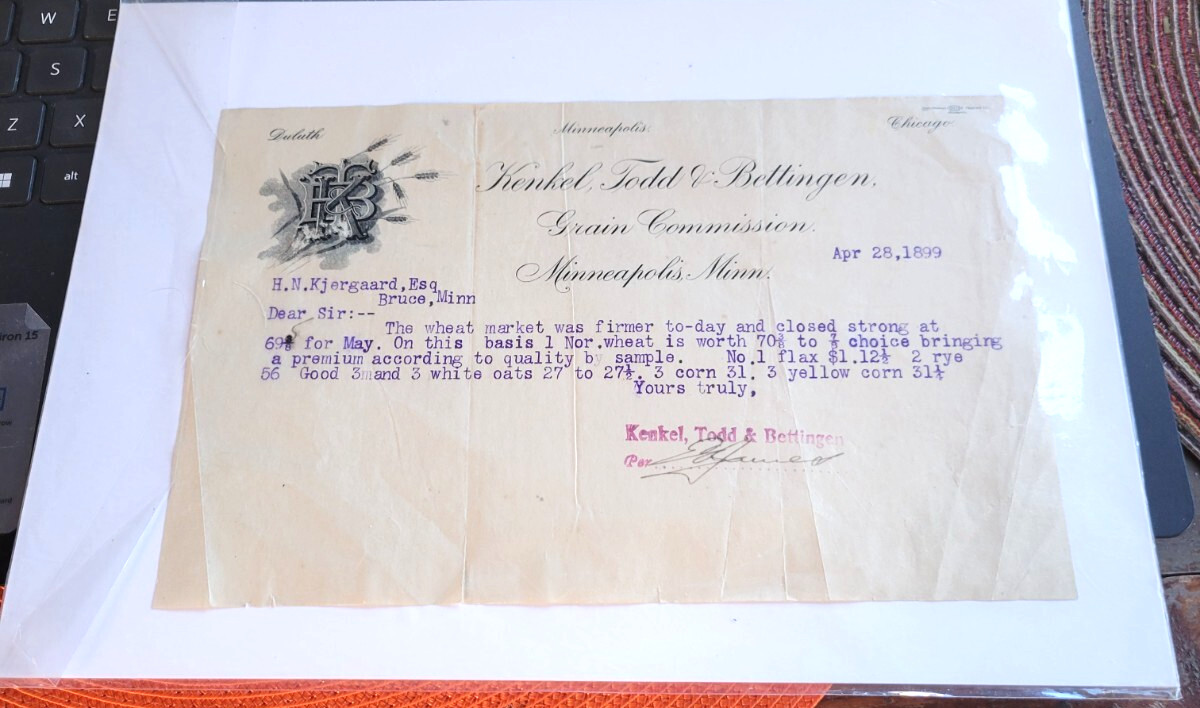 W
E
S
Z
X
alt
iron 15
Duluth
Minneapolis.
Chicago
Kenkel, Todd & Bettingen,
Grain Commission.
Minneapolis, Minn.
Apr 28,1899
H.N.Kjergaard,Esq
Bruce,Minn
Dear Sir:--
The wheat market was firmer to-day and closed strong at
for May. On this basis 1 Nor.wheat is worth 70⅜ to ⅞ choice bringing
a premium according to quality by sample. No.1 flax $1.12½ 2 rye
56 Good 3mand 3 white oats 27 to 27½. 3 corn 31. 3 yellow corn 31¼
Yours truly,
Kenkel, Todd & Bettingen
Per